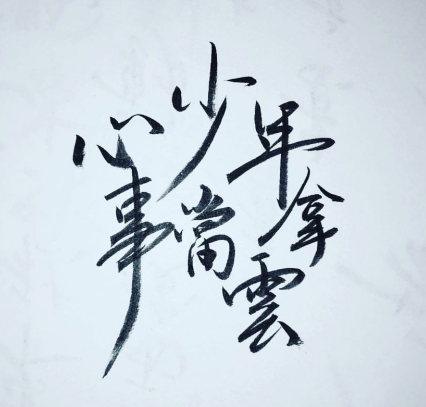 少年心事當拿雲